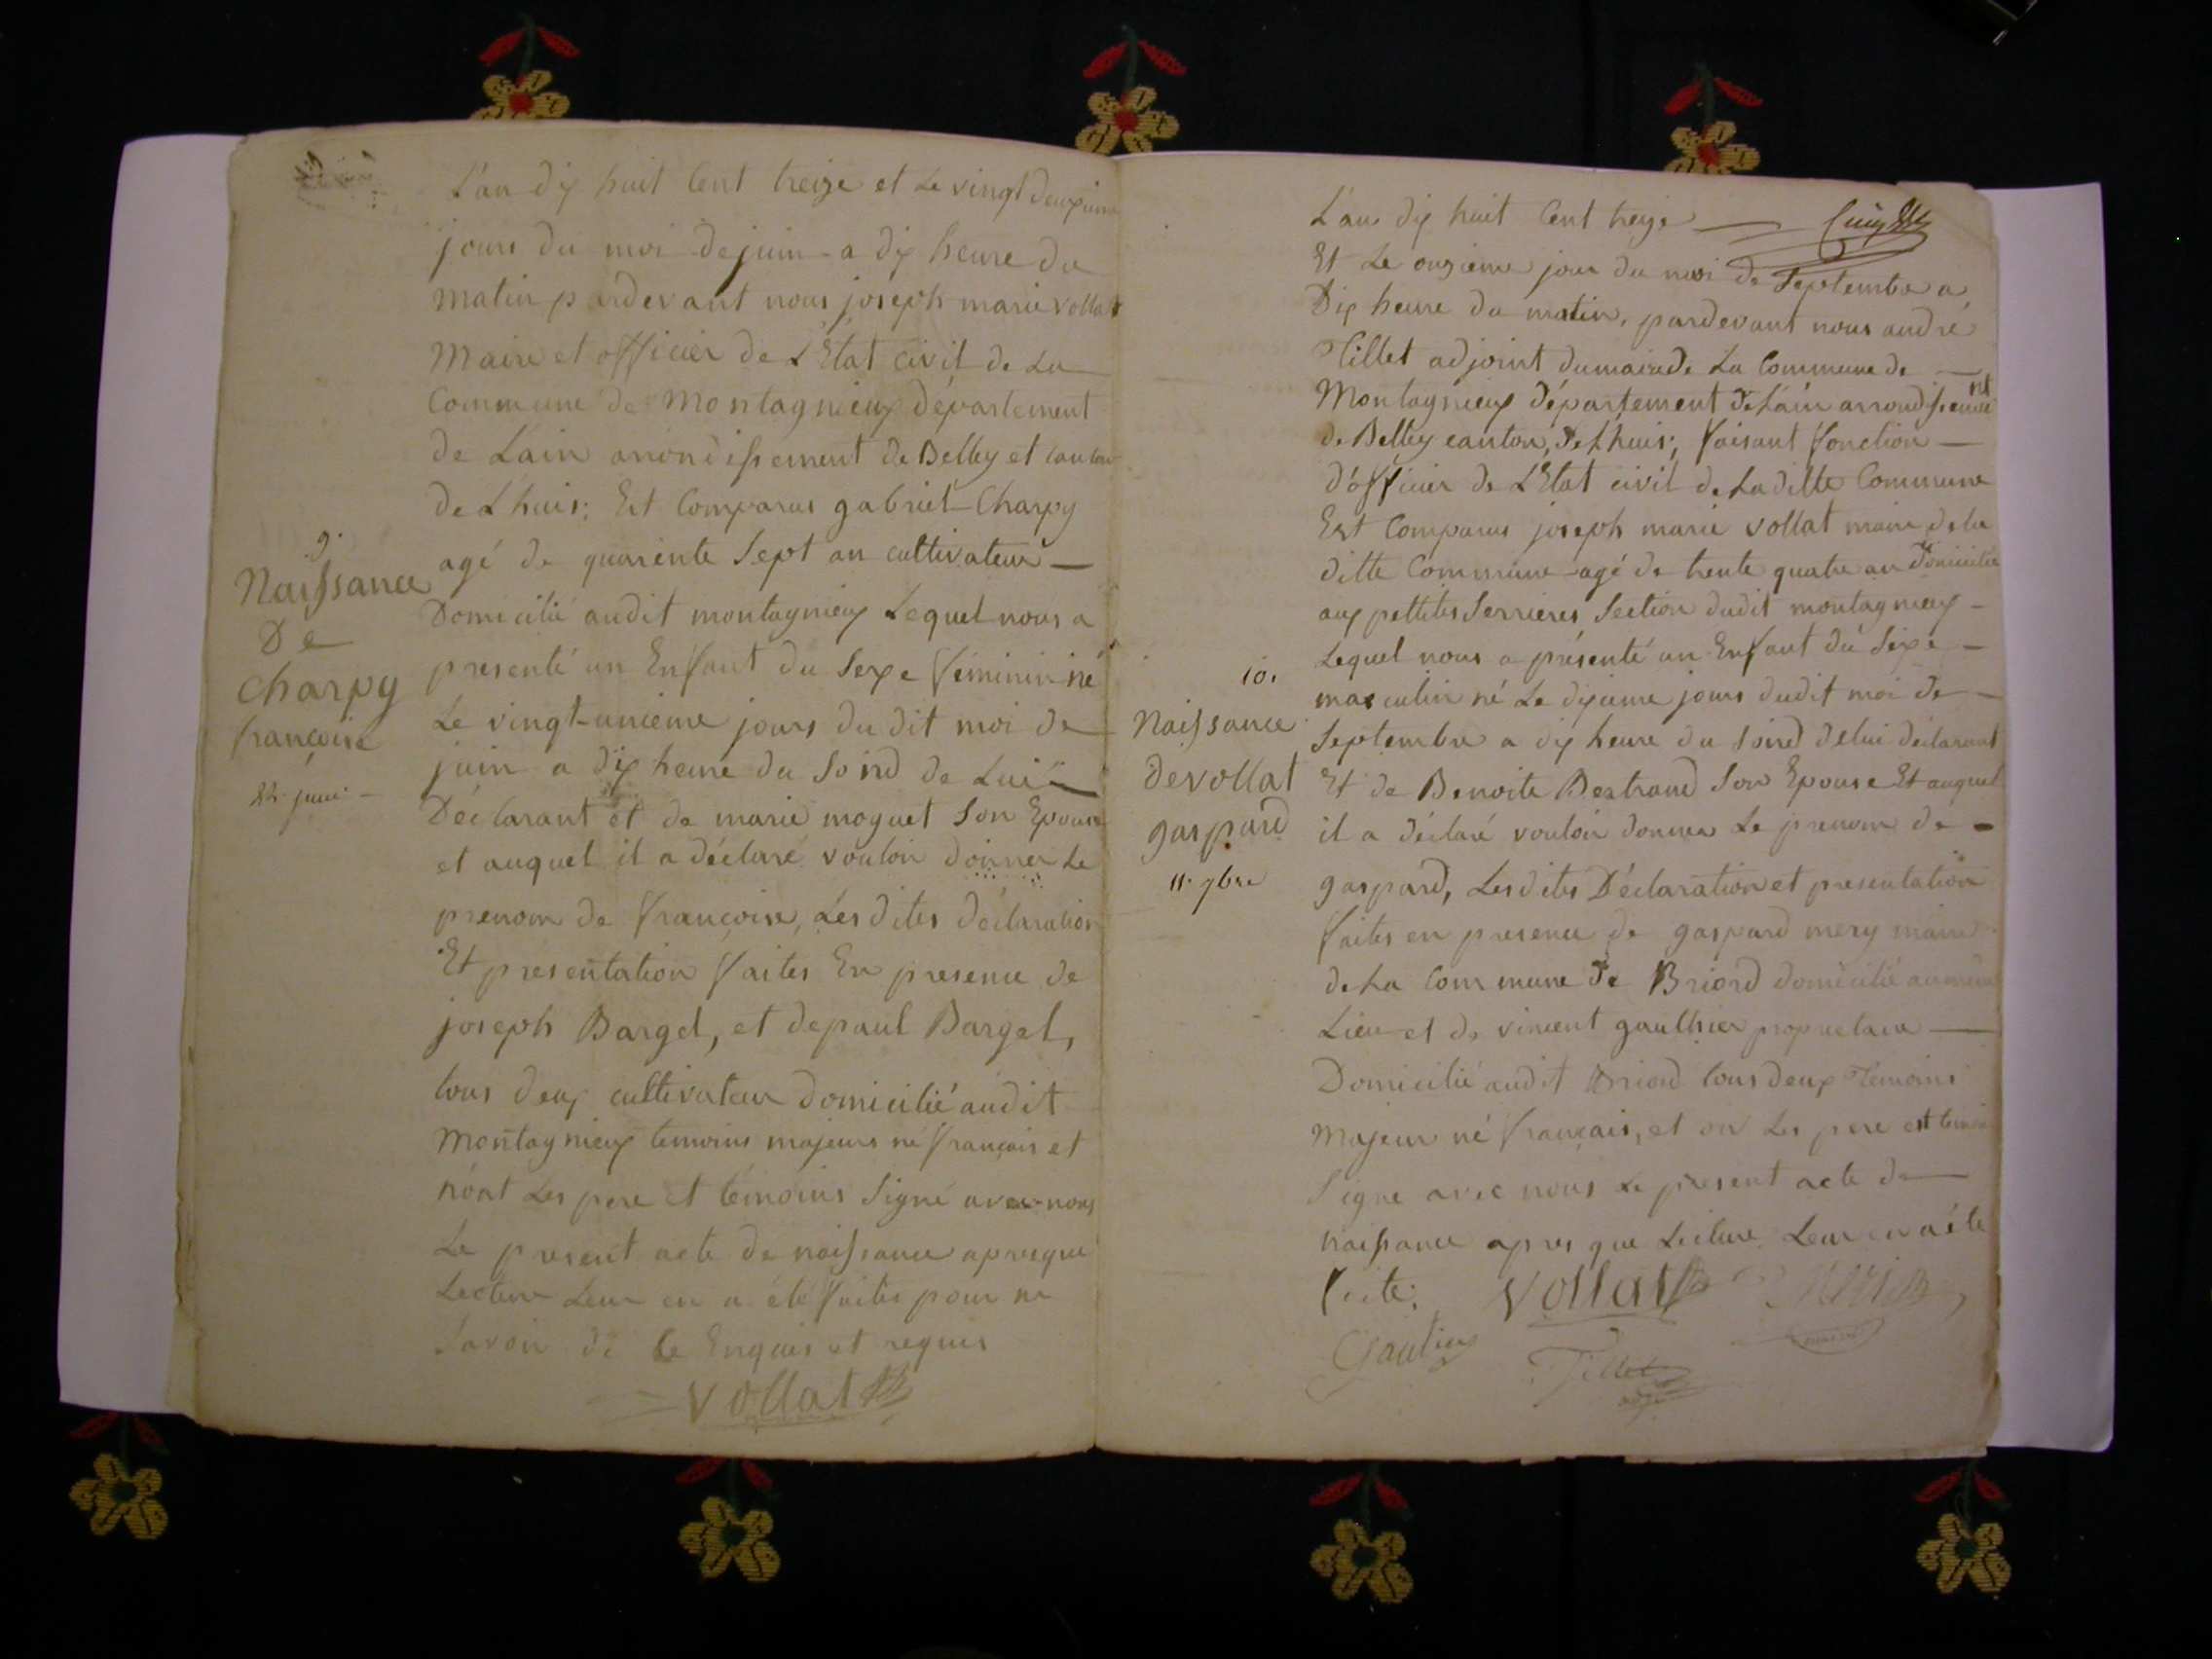 L'an dix huit Cent treize et Le vingt deuxieme
jours du moi de juin a dix heure du
matin pardevant nous joseph marie vollat
Maire et officier de L'Etat civil de La
Commune de Montagnieux département
de Lain arrondissement de Belley et canton
de Lhuis; Est Comparus gabriel Charpy
agé de quarente Sept an cultivateur
Domicilié audit montagnieux Lequel nous a
presenté un Enfant du Sexe féminin né
Le vingt-unieme jours du dit moi de
juin a dix heure du Soird de Lui
Déclarant et de marie moguet Son Epouse
et auquel il a déclaré vouloir donner Le
prenom de françoise, Les dites déclaration
Et présentation faites En presence de
joseph Bargel, et de paul Bargel,
tous deux cultivateur domicilié audit
Montagnieux temoins majeurs né français et
n'ont Les pere et témoins Signé avec nous
Le present acte de naissance apres que
Lecture Leur en a été faites pour ne
Savoir de Ce Enquis et requis
Vollat
9.
Naissance
De
Charpy
françoise
22 juin
L'an dix huit Cent treize
Et Le onzieme jour du moi de Septembre a
Dix heure du matin, pardevant nous andré
Tillet adjoint du maire de La Commune de
Montagnieux département de Lain arrondissement
de Belley canton, de Lhuis; faisant fonction
d'officier de L'Etat civil de La ditte Commune
Est Comparus joseph marie vollat maire de la
ditte Commune agé de trente quatre an Domicilié
aux pettites Serrieres Section dudit montagnieux
Lequel nous a présenté un Enfant du Sexe
masculin né Le dixieme jours dudit moi de
Septembre a dix heure du Soird de lui déclarant
Et de Benoite Bertrand Son Epouse Et auquel
il a déclaré vouloir donner Le prenom de
gaspard, Les dites Déclaration et presentation
faites en presence de gaspard mery maire
de La Commune de Briord domicilié au même
Lieu et de vincent gaulthier proprietaire
Domicilié audit Briord tous deux Temoins
majeur né français, et on Les pere et temoin
Signe avec nous Le present acte de
naissance apres que Lecture Leur en a été
faite;
Vollat
Gautier
Tillet
adjt
10.
Naissance
de vollat
gaspard
11. 7bre